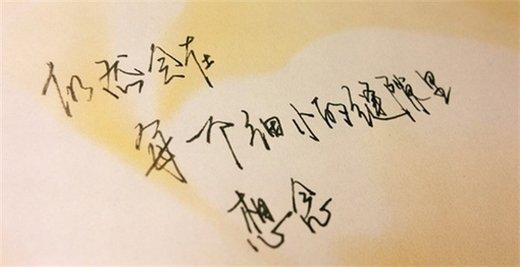 仍然会在
每一个细小的缝隙里
想念